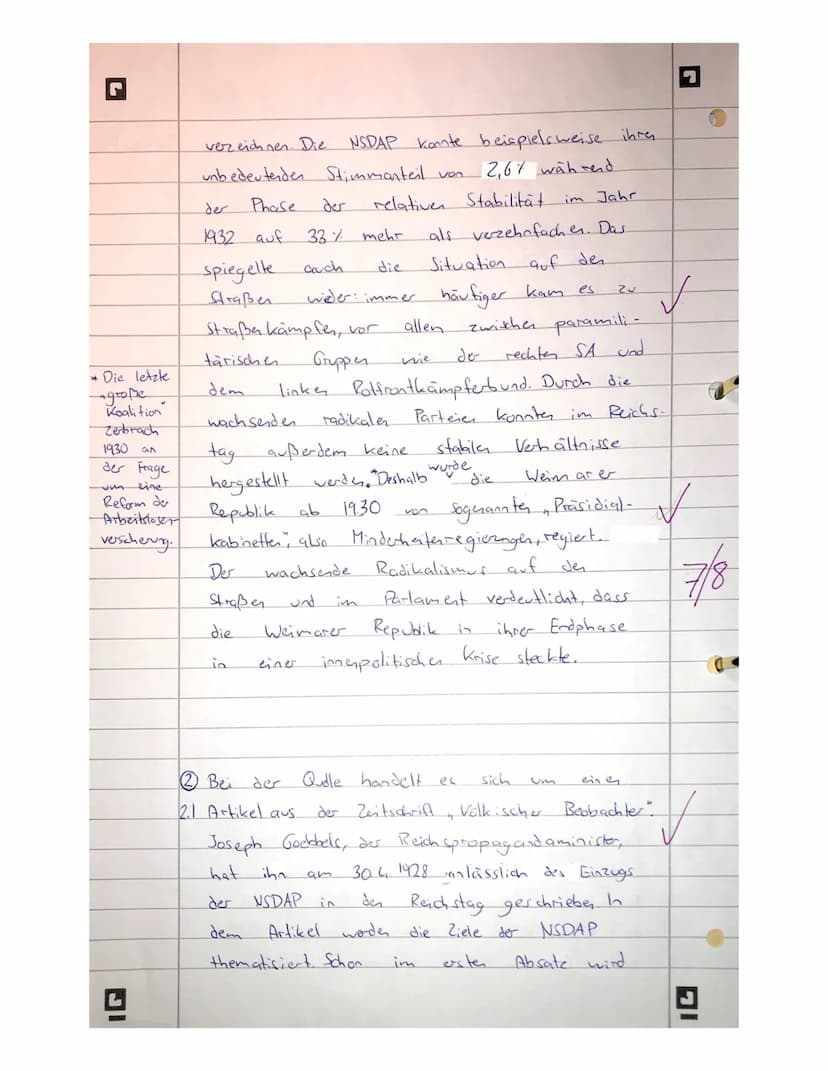 verzeichnen. Die NSDAP konnte beispielsweise ihren
unbedeutenden Stimmanteil von 2,6% während
der Phase der relativen Stabilität im Jahr
1932 auf 33% mehr als verzehnfachen. Das
spiegelte auch die Situation auf den
Straßen wider: immer häufiger kam es zu
Straßenkämpfen, vor allem zwischen paramili-
tärischen Gruppen wie der rechten SA und
dem linken Rotfrontkämpferbund. Durch die
wachsenden radikalen Parteien konnten im Reichs-
tag außerdem keine stabilen Verhältnisse
hergestellt werden.* Deshalb wurde die Weimarer
Republik ab 1930 von sogenannten „Präsidial-
kabinetten", also Minderheitenregierungen, regiert.
Der wachsende Radikalismus auf den
Straßen und im Parlament verdeutlicht, dass
die Weimarer Republik in ihrer Endphase
in einer innenpolitischen Krise steckte.
* Die letzte
"große
Koalition"
zerbrach
1930 an
der Frage
um eine
Reform der
Arbeitslosen-
versicherung.
7/8
② Bei der Quelle handelt es sich um einen
2.1 Artikel aus der Zeitschrift „Völkischer Beobachter".
Joseph Goebbels, der Reichspropagandaminister,
hat ihn am 30.4.1928 anlässlich des Einzugs
der NSDAP in den Reichstag geschrieben. In
dem Artikel werden die Ziele der NSDAP
thematisiert. Schon im ersten Absatz wird